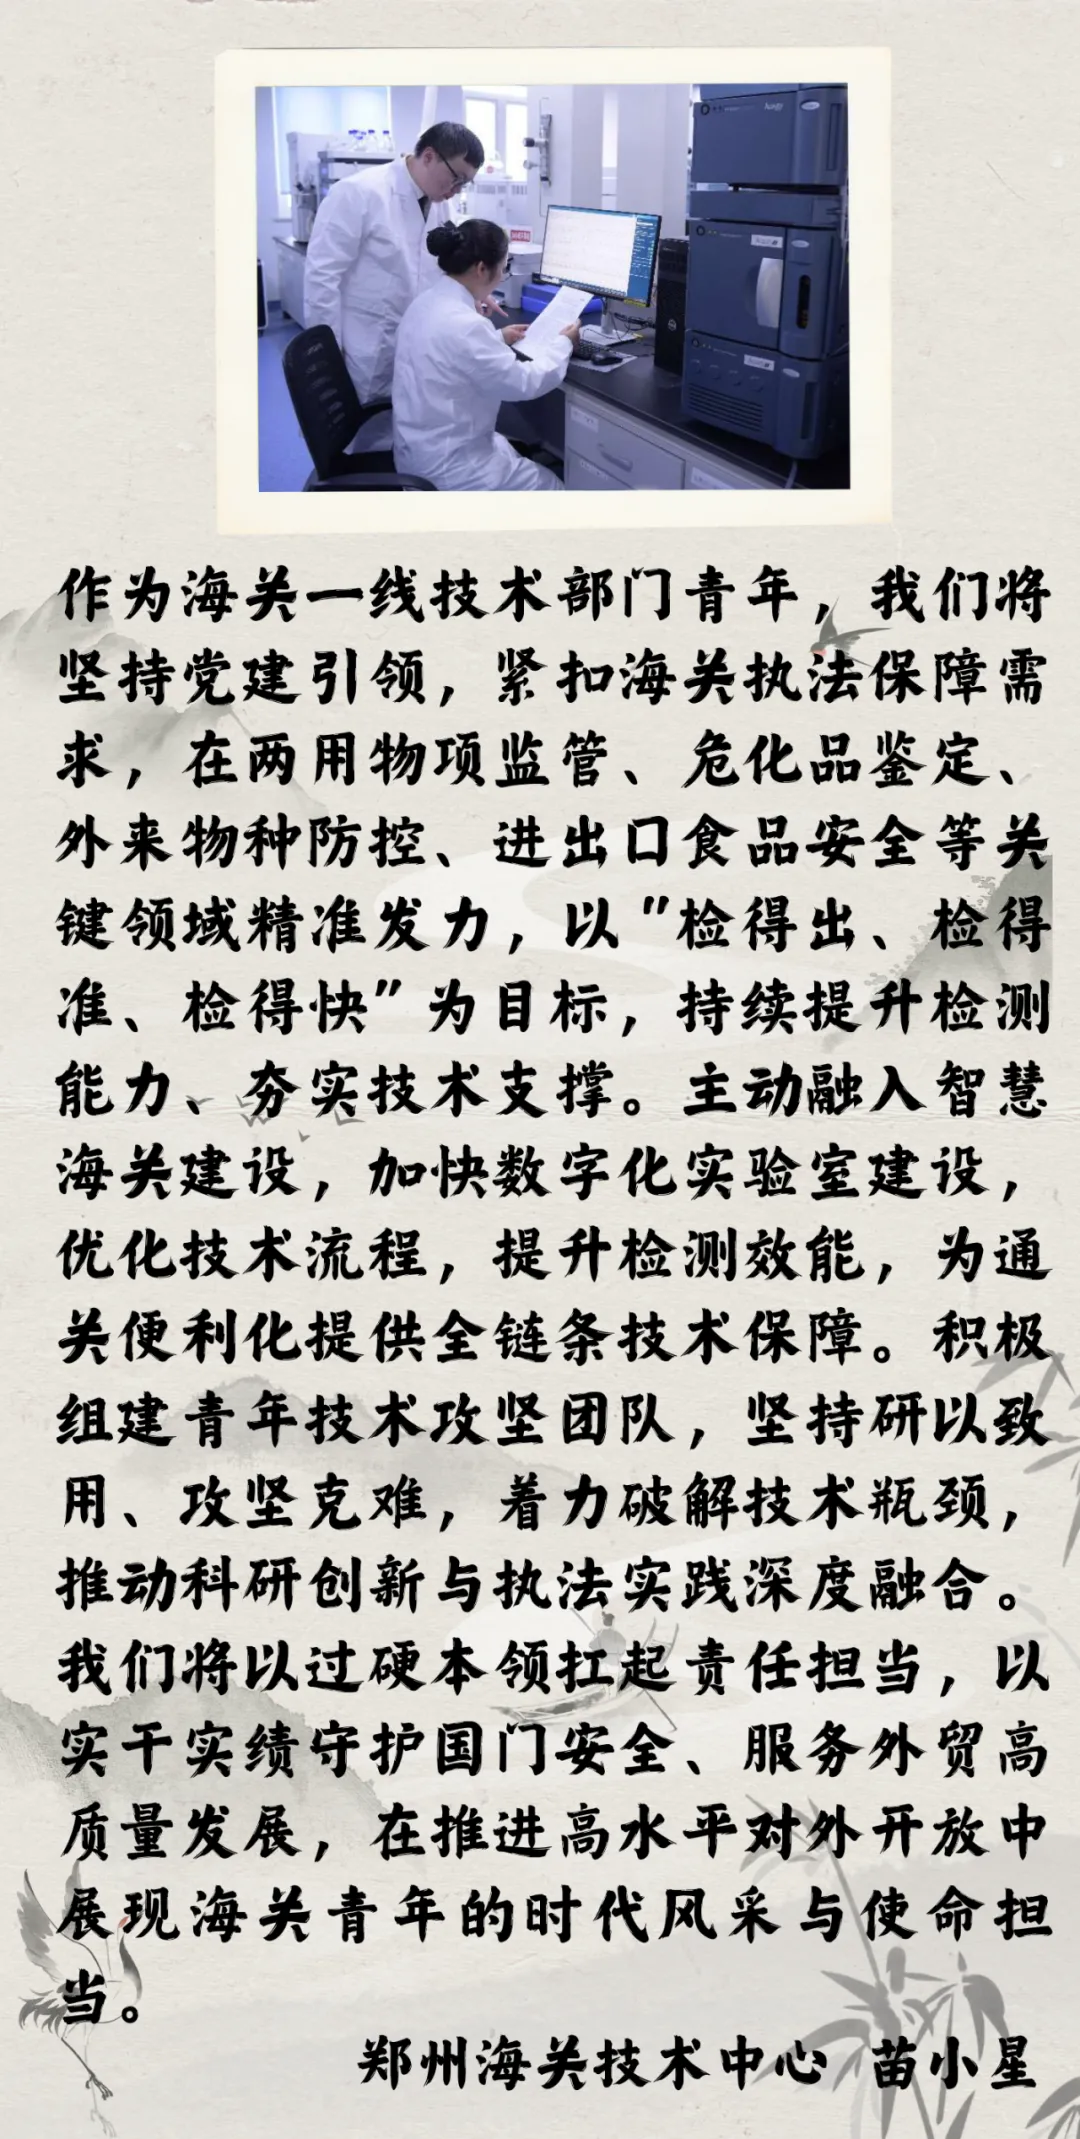 作为海关一线技术部门青年，我们将
坚持党建引领，紧扣海关执法保障需
求，在两用物项监管、危化品鉴定、
外来物种防控、进出口食品安全等关
键领域精准发力，以"检得出、检得
准、检得快"为目标，持续提升检测
能力、夯实技术支撑。主动融入智慧
海关建设，加快数字化实验室建设，
优化技术流程，提升检测效能，为通
关便利化提供全链条技术保障。积极
组建青年技术攻坚团队，坚持研以致
用、攻坚克难，着力破解技术瓶颈，
推动科研创新与执法实践深度融合。
我们将以过硬本领扛起责任担当，以
实干实绩守护国门安全、服务外贸高
质量发展，在推进高水平对外开放中
展现海关青年的时代风采与使命担
当。
郑州海关技术中心 苗小星